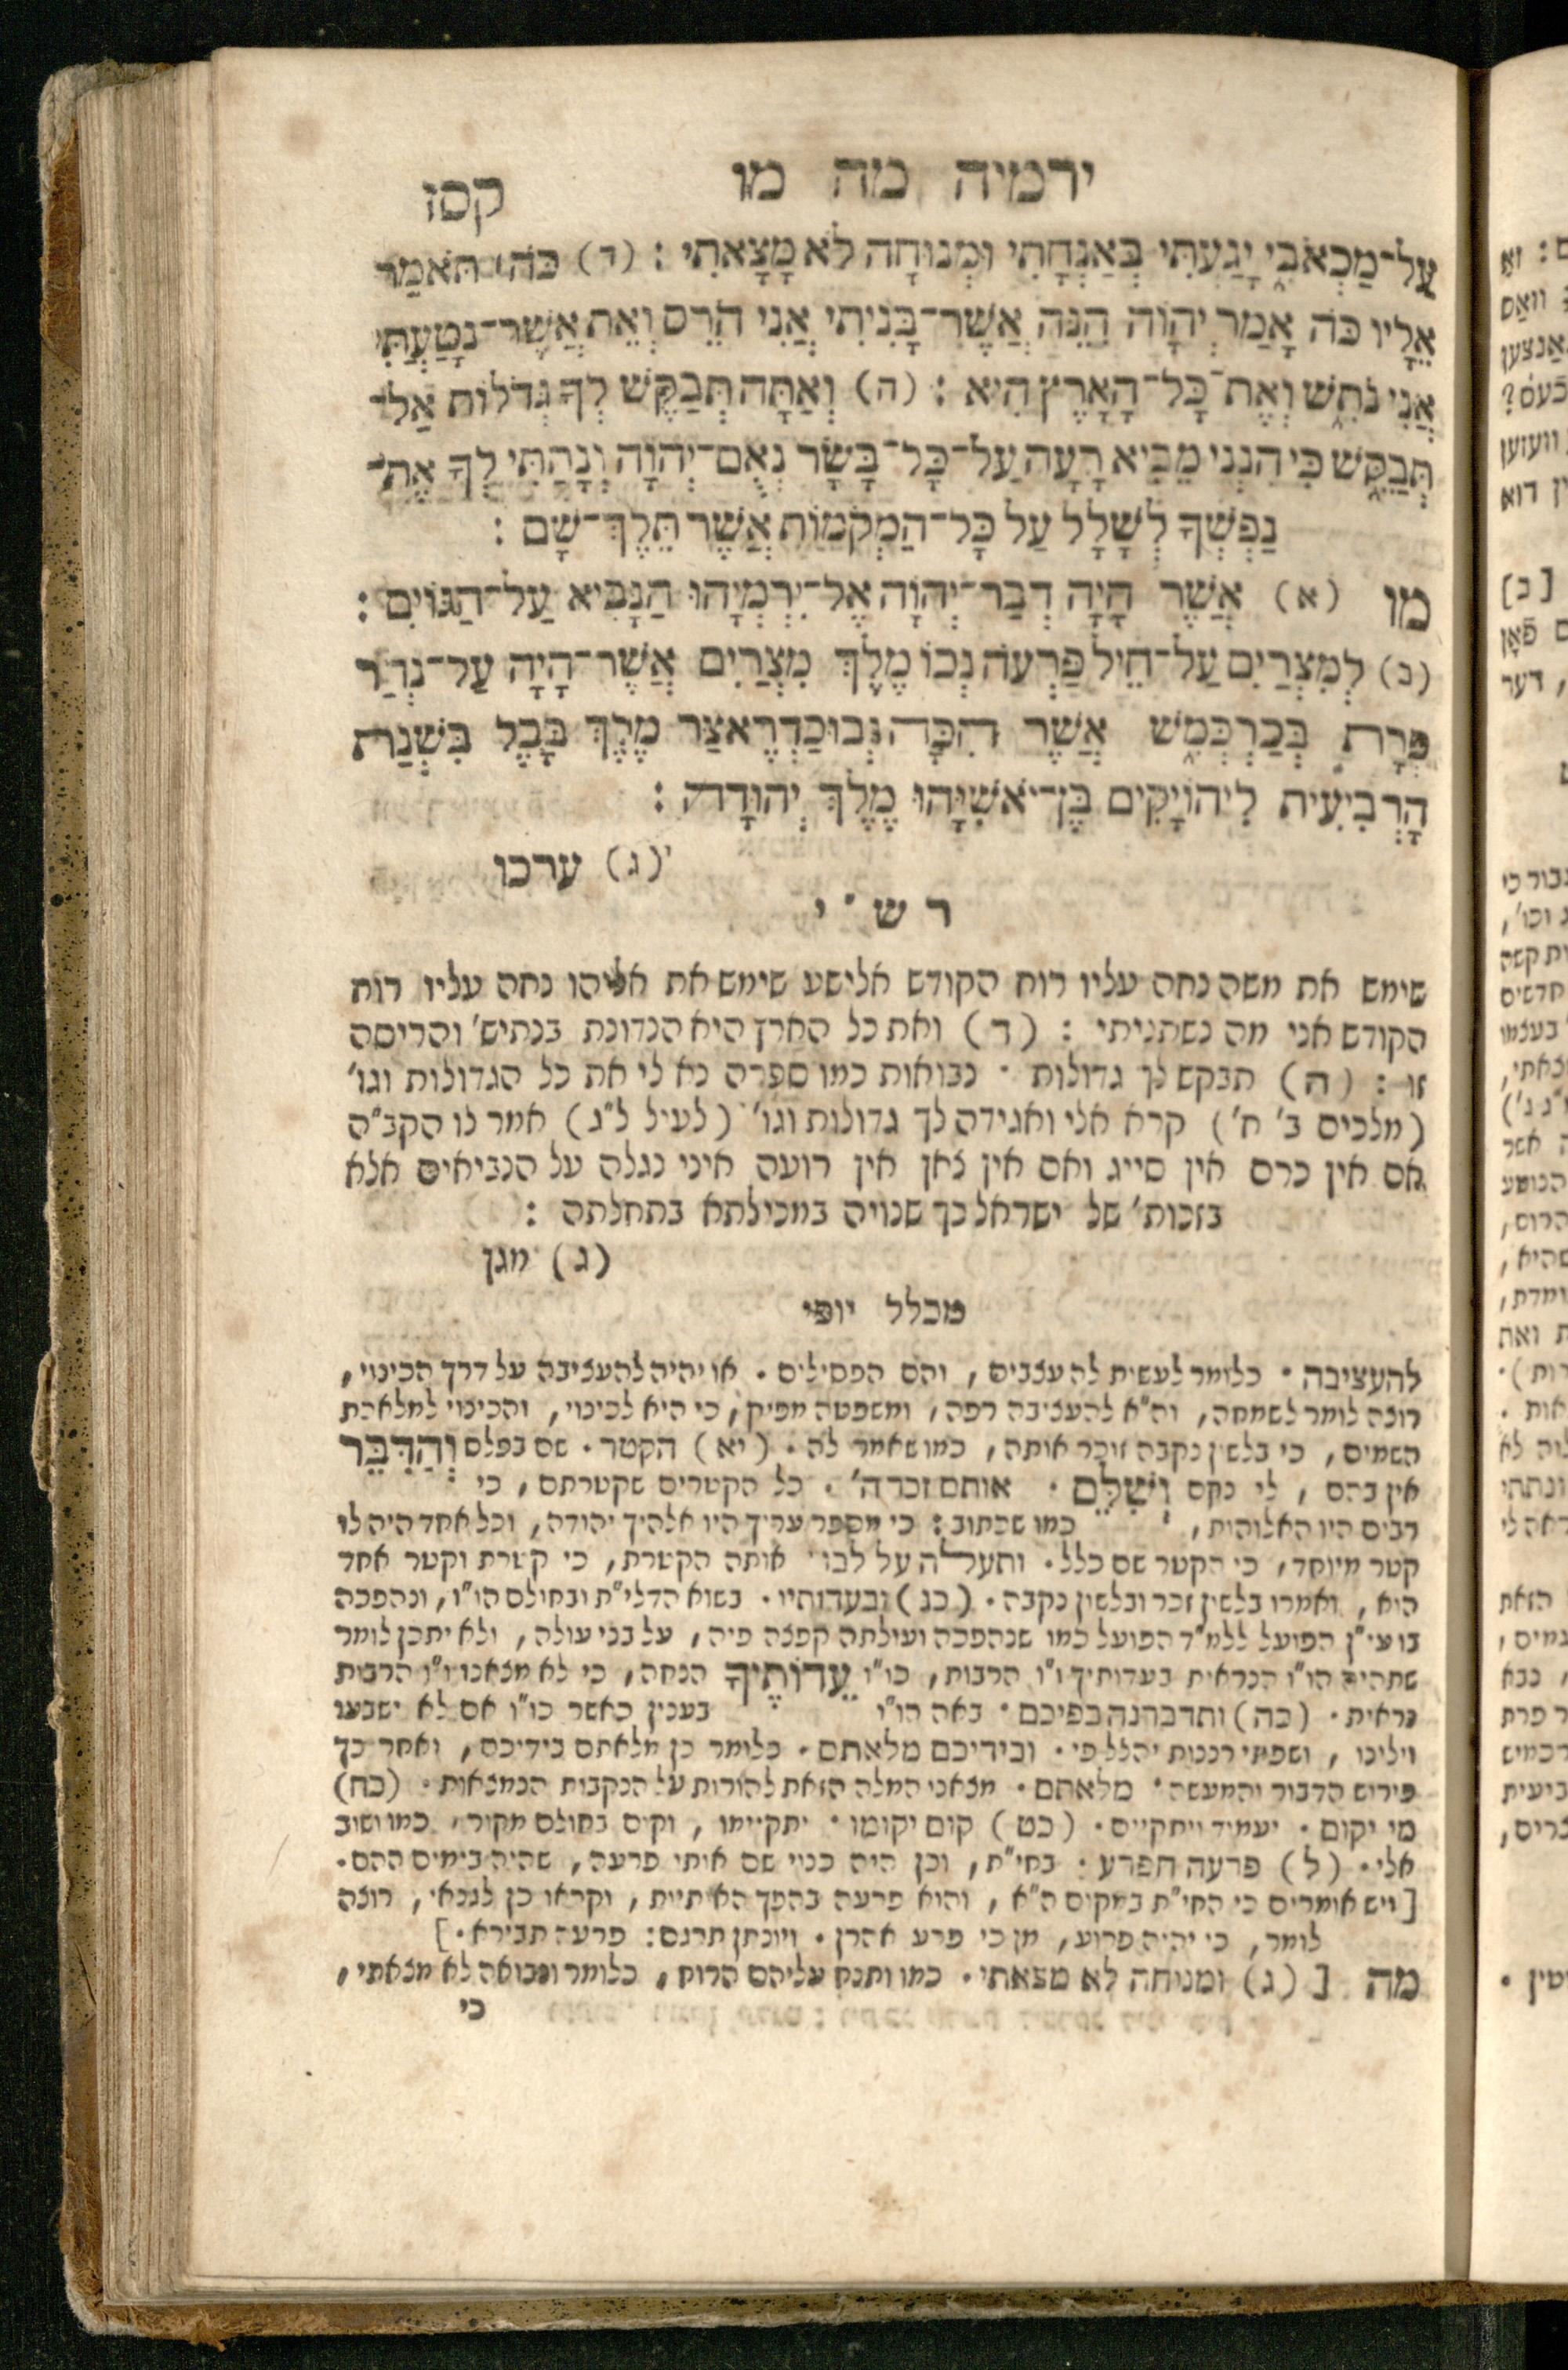 ירמיה מה מו
קסז
עַל־מַכְאֹבִי יָגַעְתִּי בְּאַנְחָתִי וּמְנוּחָה לֹא מָצָאתִי : (ד) כֹּה תֹּאמַר
אֵלָיו כֹּה אָמַר יְהוָה הִנֵּה אֲשֶׁר־בָּנִיתִי אֲנִי הֹרֵס וְאֵת אֲשֶׁר־נָטַעְתִּי
אֲנִי נֹתֵשׁ וְאֶת־כָּל־הָאָרֶץ הִיא : (ה) וְאַתָּה תְּבַקֶּשׁ לְךָ גְדֹלוֹת אַל־
תְּבַקֵּשׁ כִּי הִנְנִי מֵבִיא רָעָה עַל־כָּל־בָּשָׂר נְאֻם־יְהוָה וְנָתַתִּי לְךָ אֶת־
נַפְשְׁךָ לְשָׁלָל עַל כָּל־הַמְּקֹמוֹת אֲשֶׁר תֵּלֶךְ־שָׁם :
מו (א) אֲשֶׁר הָיָה דְבַר־יְהוָה אֶל־יִרְמְיָהוּ הַנָּבִיא עַל־הַגּוֹיִם :
(ב) לְמִצְרַיִם עַל־חֵיל פַּרְעֹה נְכוֹ מֶלֶךְ מִצְרַיִם אֲשֶׁר־הָיָה עַל־נְהַר
פְּרָת בְּכַרְכְּמִשׁ אֲשֶׁר הִכָּה נְבוּכַדְרֶאצַּר מֶלֶךְ בָּבֶל בִּשְׁנַת
הָרְבִיעִית לִיהוֹיָקִים בֶּן־יֹאשִׁיָּהוּ מֶלֶךְ יְהוּדָה :
(ג) ערכו
ר ש " י
שימש את משה נחה עליו רוח הקודש אלישע שימש את אליהו נחה עליו רוח
הקודש אני מה נשתניתי : (ד) ואת כל הארץ היא הנדונת בנתיש' והריסה
זו : (ה) תבקש לך גדולות · נבואות כמו ספרה נא לי את כל הגדולות וגו'
(מלכים ב' ח') קרא אלי ואגידה לך גדולות וגו' (לעיל ל"ג) אמר לו הקב"ה
אם אין כרם אין סייג ואם אין צאן אין רועה איני נגלה על הנביאים אלא
בזכות' של ישראל כך שנויה במכילתא בתחלתה :
(ג) מגן
מכלל יופי
להעציבה · כלומר לעשית לה עצבים , והם הפסילים . או יהיה להעציבה על דרך הכינוי ,
רוצה לומר לשמחה, וה"א להעציבה רפה, ומשפטה מפיק, כי היא לכינוי, והכינוי למלאכת
השמים , כי בלשין נקבה זוכר אותה , כמו שאמר לה . (יא) הקטר . שם בפלם וְהַדִּבֵּר
אין בהם , לי נקם וְשִׁלֵּם . אותם זכר ה' . כל הקטרים שקטרתם , כי
רבים היו האלוהית , כמו שכתוב : כי מספר עריך היו אלהיך יהודה , וכל אחד היה לו
קטר מיוחד , כי הקטר שם כלל . ותעלה על לבו אותה הקטרת , כי קטרת וקטר אחד
היא , ואמרו בלשין זכר ובלשין נקבה . (כג) ובעדותיו . בשוא הדלי"ת ובחולם הו"ו, ונהפכה
בו עי"ן הפועל ללמ"ד הפועל כמו שנהפכה ועילתה קפצה פיה , על בני עולה , ולא יתכן לומר
שתהיה הו"ו הנראית בעדותיך ו"ו הרבות , כו"ו עֵדוֹתֶיךָ הנחה , כי לא מצאנו ו"ו הרבות
נראית . (כה) ותדברנה בפיכם . באה הו"ו בענין כאשר כו"ו אם לא ישבעו
וילינו , ושפתי רננות יהלל פי . ובידיכם מלאתם . כלומר כן מלאתם בידיכם , ואחר כך
פירוש הדבור והמעשה . מלאתם . מצאני המלה הזאת להורות על הנקבות הנמצאות . (כח)
מי יקום . יעמיד ויתקיים . (כט) קום יקומו . יתקיימו , וקים בחולם מקור , כמו ושוב
אלי . (ל) פרעה חפרע . בחי"ת , וכן היה כנוי שם אותי פרעה , שהיה בימים ההם .
[ ויש אומרים כי החי"ת במקום ה"א , והוא פרעה בהפך האותיות , וקראו כן לגנאי , רוצה
לומר , כי יהיה פרוע , מן כי פרע אהרן . ויונתן תרגם : פרעה תבירא . ]
מה [ (ג) ומנוחה לא מצאתי . כמו ותנח עליהם הרוח , כלומר ונבואה לא מצאתי ,
כי